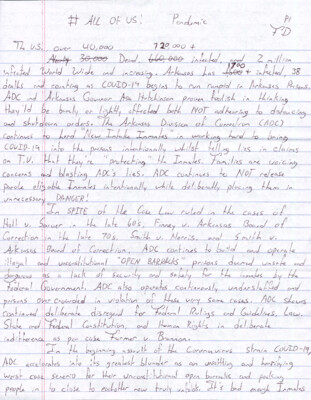 # ALL OF US! Pandemic P1
The U.S. over 40,000 720,000 +
Nearly 30,000 Dead. 660,000 infected, 2 million
infected World Wide and increasing. Arkansas has 1700 + infected, 38
deaths and counting as COVID-19 begins to run rampid in Arkansas Prisons.
ADC and Arkansas Governor Asa Hutchinson proven foolish in thinking
They'd be barely or lightly affected both NOT adhearing to distancing
and shutdown orders. The Arkansas Division of Correction (ADC)
continues to herd "New Intake Inmates" in working hard to bring
COVID-19 into the prisons intentionally whilst telling lies in claims
on T.V. that they're "protecting" the Inmates. Families are voicing
concerns and blasting ADC's lies. ADC continues to NOT release
parole eligible Inmates intentionally while deliberatly placing them in
unnecessary DANGER!
In SPITE of the Case Law ruled in the cases of
Holt v. Sarver in the late 60's, Finney v. Arkansas Board of
Correction in the late 70's, Smith v. Norris, and Smith v.
Arkansas Board of Correction, ADC continues to build and operate
illegal and unconstitutional "OPEN BARRACKS" prisons deemed unsafe and
dangerous as a lack of security and safety for the inmates by the
Federal Government. ADC also operates continuously understaffed and
prisons over crowded in violation of these very same cases. ADC shows
continued deliberate disregard for Federal Ruling and Guidelines, Law,
State and Federal Constitution, and Human Rights in deliberate
indifference as per case Farmer v. Brennan.
In the beginning assault of the Coronavirus strain COVID-19,
ADC accelerates into its greatest blunder as an unsettling and terrifying
worst case scenario for their unconstitutional open barracks and packing
people in to close to eachother now truly unfolds. It's bad enough Inmates